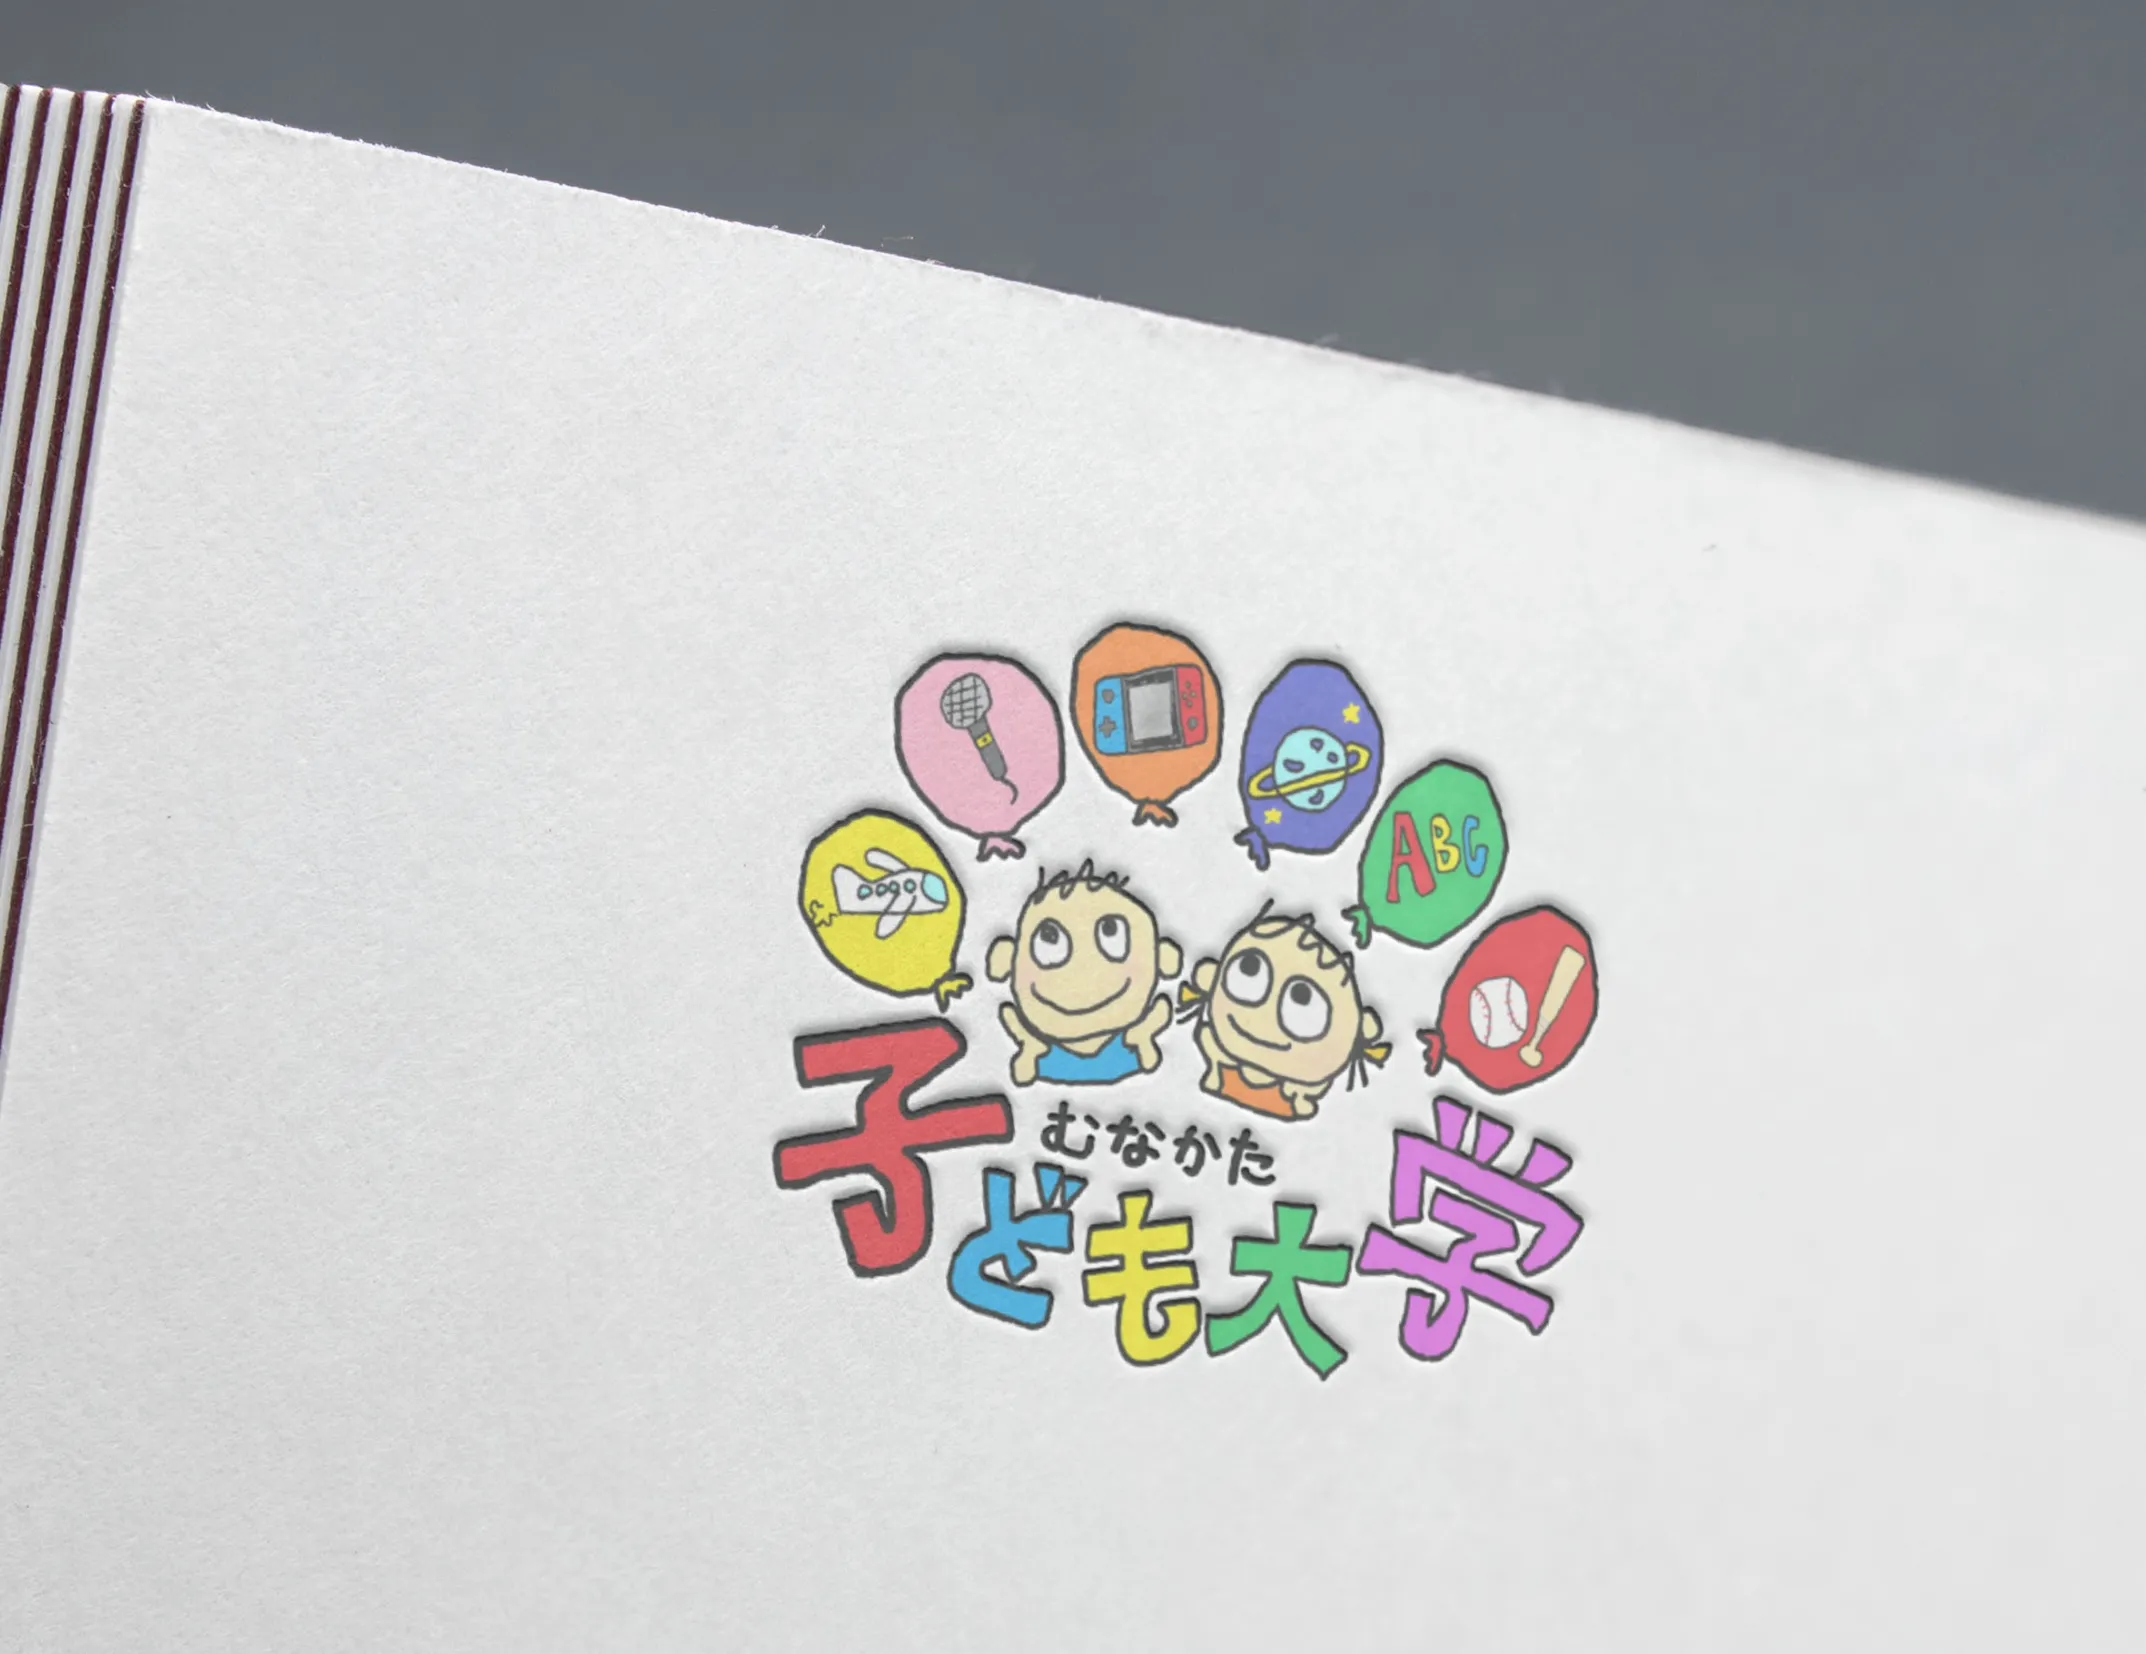 ABC
むなかた
子ども大学